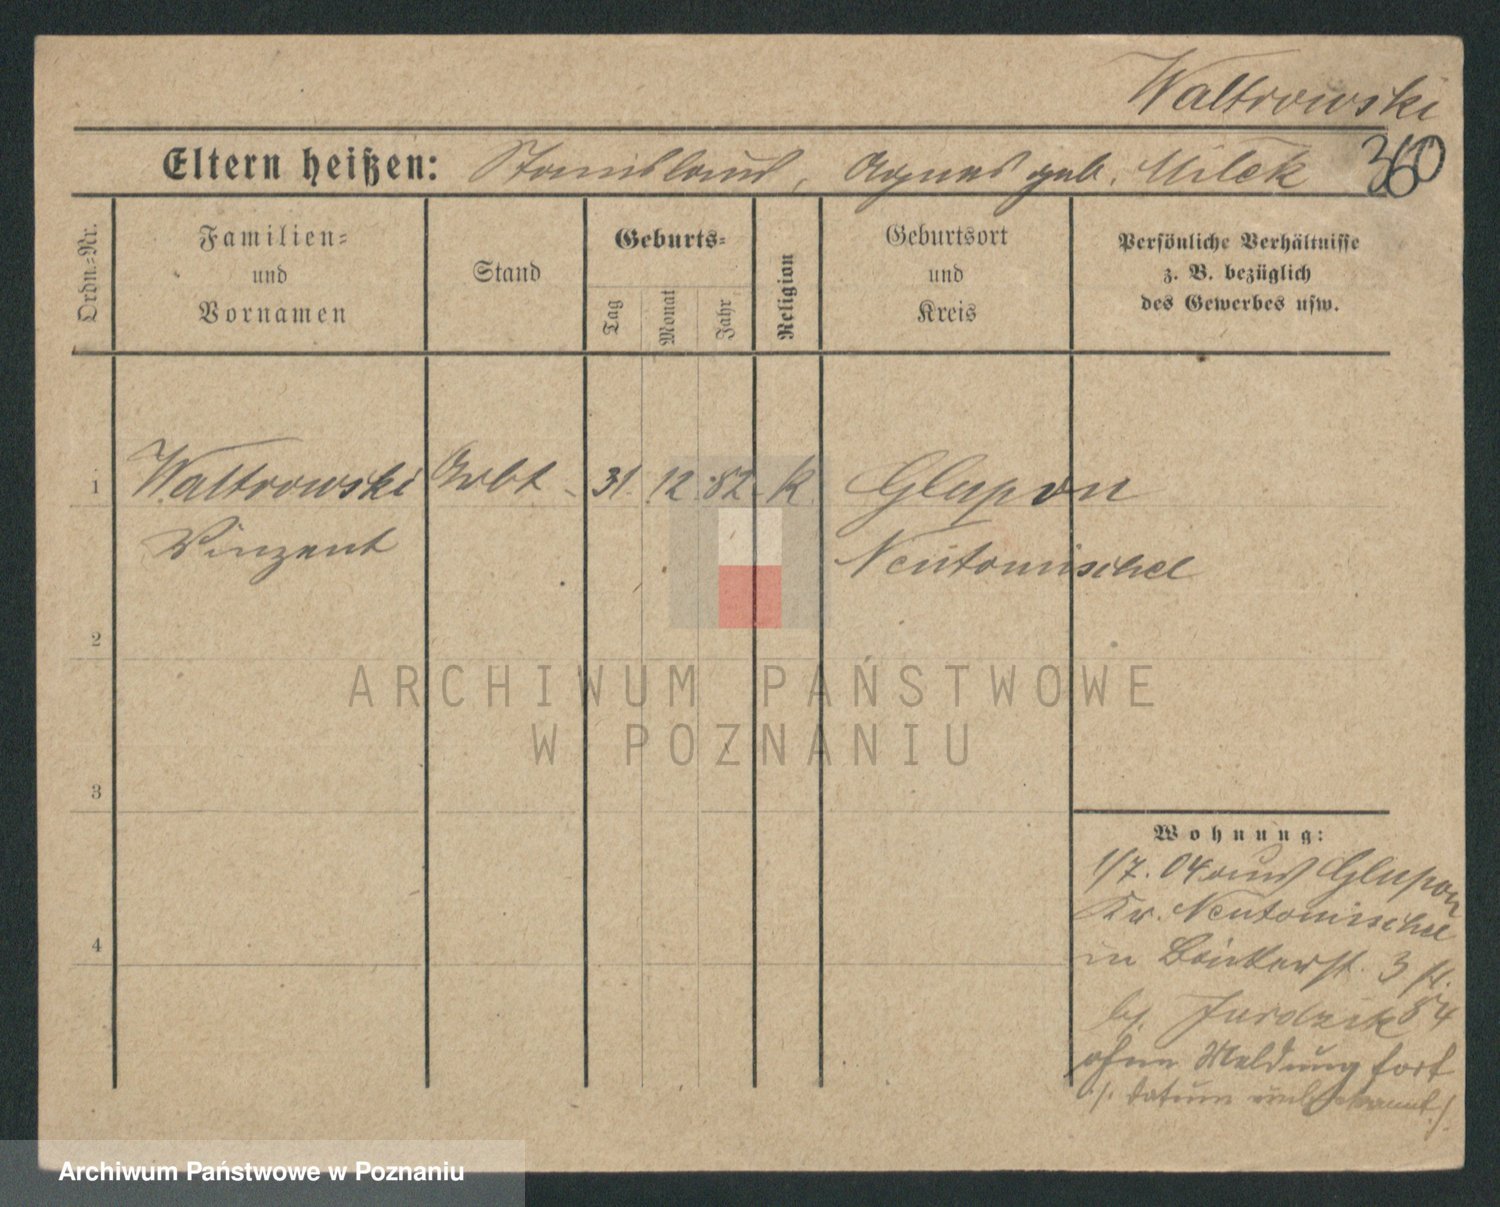 Waltrowski
Eltern heißen: Stanislaus, Agnes geb. Milek
360
Ordn.-Nr.
Familien-
und
Vornamen
Stand
Geburts-
Tag
Monat
Jahr
Religion
Geburtsort
und
Kreis
Persönliche Verhältnisse
z. B. bezüglich
des Gewerbes usw.
1 Waltrowski Arbt. 31. 12. 82. K. Glupon
Vinzent Neutomischel
2
3
4
Wohnung:
1/7. 04 aus Glupon
Kr. Neutomischel
in 3
bj. 84
ohne Meldung fort
/. Datum unbekannt ./
ARCHIWUM PAŃSTWOWE
W POZNANIU
Archiwum Państwowe w Poznaniu